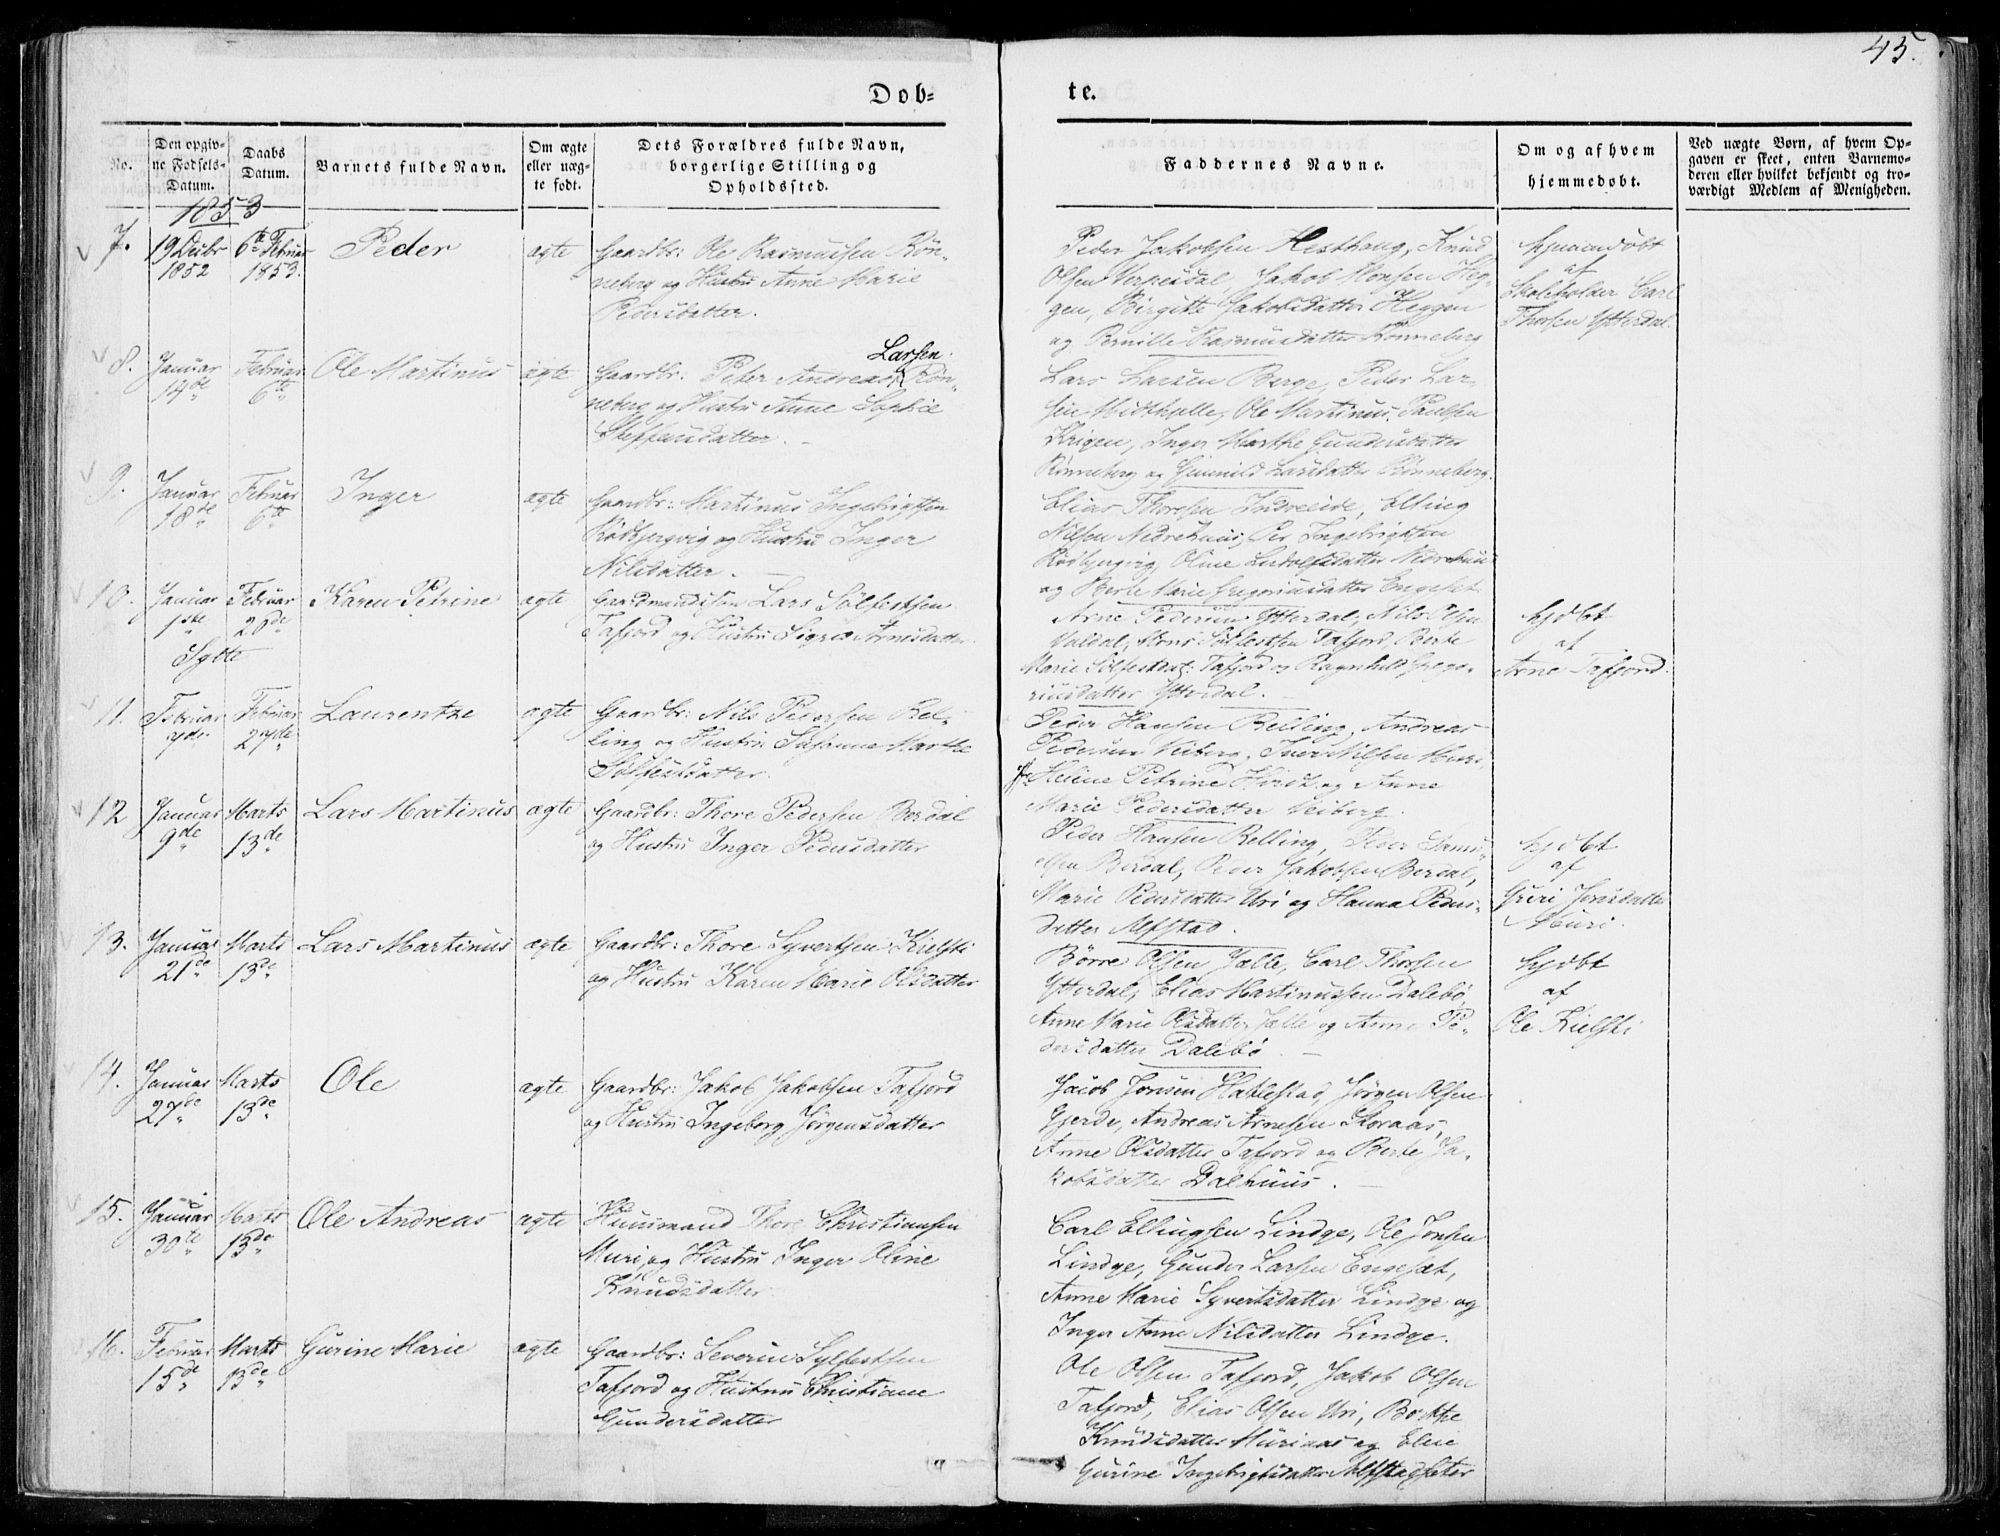 45.
Døb-
te.
No.
Den opgiv-
ne Fødsels-
Datum.
Daabs
Datum.
Barnets fulde Navn.
Om ægte
eller uæg-
te født.
Dets Forældres fulde Navn,
borgerlige Stilling og
Opholdssted.
Faddernes Navne.
Om og af hvem
hjemmedøbt.
Ved uægte Børn, af hvem Op-
gaven er skeet, enten Barnemo-
deren eller hvilket bekjendt og tro-
værdigt Medlem af Menigheden.
1853
7.
19 Decbr
1852
6te Februar
1853.
Peder
ægte
Gaardbr: Ole Rasmussen Røn-
neberg og Hustru Anne Marie
Pedersdatter.
Peder Jakobsen Hesthaug, Knud
Olsen Verpesdal, Jakob Monsen Heg-
gen, Birgitte Jakobsdatter Heggen
og Pernille Rasmusdatter Rønneberg
Hjemmedøbt
af
Skoleholder Carl
Thorsen Ytterdal.
8.
Januar
14de
Februar
6te
Ole Martinus
ægte
Larsen
Gaardbr: Peter Andreas Røn-
neberg og Hustru Anne Sophie
Steffensdatter.
Lars Larsen Berge, Peder Lar-
sen Midthjelle, Ole Martinus Paulsen
Krigen, Inger Marthe Gundersdatter
Rønneberg og Gunnild Larsdatter Rønneberg.
9.
Januar
18de
Februar
6te
Inger
ægte
Gaardbr: Martinus Ingebrigtsen
Rødbjergvig og Hustru Inger
Nilsdatter.
Elias Thoresen Indreeide, Elling
Nilsen Nedrehuus, Per Ingebrigtsen
Rødbjergvig, Oline Ludolfsdatter Nedrehuus
og Berte Marie Gregoriusdatter Engeset
10.
Januar
1ste
Sylte
Februar
20de
Karen Petrine
ægte
Gaardmandssøn Lars Sølfestsen
Tafjord og Hustru Sigrid Arnesdatter
Arne Pedersen Ytterdal, Nils Olsen
Muldal, Arne Sølfestsen Tafjord, Berte
Marie Sølfestdat: Tafjord og Ragnhild Grego-
riusdatter Ytterdal.
hjdbt
af
Arne Tafjord.
11.
Februar
7de
Februar
27de
Laurentze
ægte
Gaardbr: Nils Pedersen Rel-
ling og Hustru Susanne Marthe
Sølfestdatter.
Peder Hansen Relling, Andreas
Pedersen Veiberg, Iver Nilsen Muri,
Jfr Helene Petrine Hirdt og Anne
Marie Pedersdatter Veiberg.
12
Januar
9de
Marts
13de
Lars Martinus
ægte
Gaardbr: Thore Pedersen Berdal
og Hustru Inger Pedersdatter
Peder Hansen Relling, Peder Samu-
elsen Berdal, Peder Jakobsen Berdal,
Marie Pedersdatter Uri og Hanna Peders-
datter Alfstad.
hjdbt
af
Guri Jonsdatter
Muri.
13.
Januar
21de
Marts
13de
Lars Martinus
ægte
Gaardbr: Thore Syvertsen Kielsti
og Hustru Karen Marie Olsdatter
Børre Olsen Jelle, Carl Thorsen
Ytterdal, Elias Martinussen Dalebø
Anne Marie Olsdatter Jelle og Anne Pe-
dersdatter Dalebø.
hjdbt
af
Ole Kielsti
14.
Januar
27de
Marts
13de
Ole
ægte
Gaardbr: Jakob Jakobsen Tafjord
og Hustru Ingeborg Jørgensdatter
Jacob Jonsen Hatlestad, Jørgen Olsen
Gjerde, Andreas Arnesen Storaas,
Anne Olsdatter Tafjord og Berte Ja-
kobsdatter Dalhuus.
15.
Januar
30te
Marts
13de
Ole Andreas
ægte
Huusmand Thore Christiansen
Muri og Hustru Inger Oline
Knudsdatter
Carl Ellingsen Lindge, Ole Jonsen
Lindge, Gunder Larsen Engeset,
Anne Marie Syvertsdatter Lindge og
Inger Anne Nilsdatter Lindge.
16.
Februar
15de
Marts
13de
Gurine Marie
ægte
Gaardbr: Severin Sylfestsen
Tafjord og Hustru Christiane
Gundersdatter
Ole Olsen Tafjord, Jakob Olsen
Tafjord, Elias Olsen Uri, Berthe
Knudsdatter Muriaas og Elen
Gurine Ingebrigtsdatter Alfstadseter